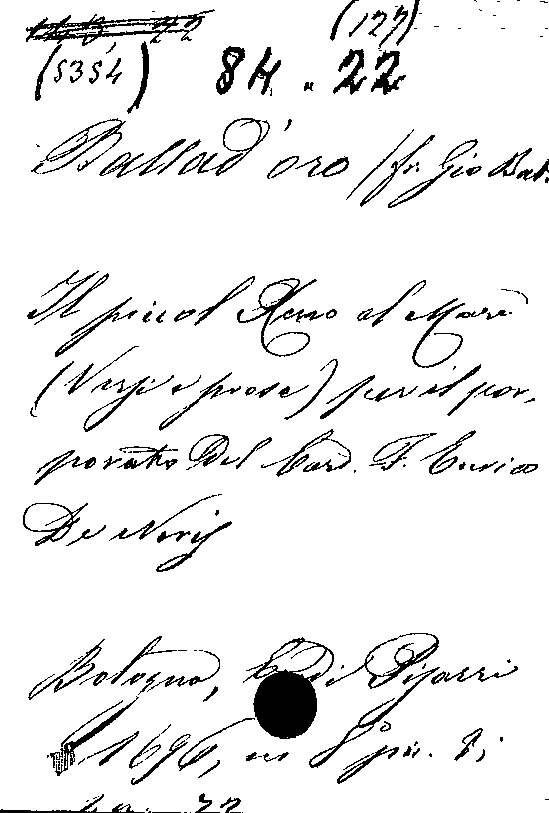 (177)
(5354) 8H. 22
Ballad'oro (fr. Gio Bat.
Il picciol Reno al Mare
(Versi e prose) per il por-
porato Del Card. F. Enrico
De Noris
Bologna, E. Di Pisarri
1696, in 8° pic. Di
22